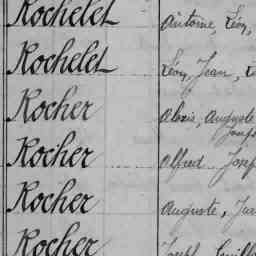 Rochelet Antoine, Léon,
Rochelet Léon, Jean,
Rocher Alexis, Auguste
Joseph
Rocher Alfred Joseph
Rocher Auguste,
Rocher Joseph